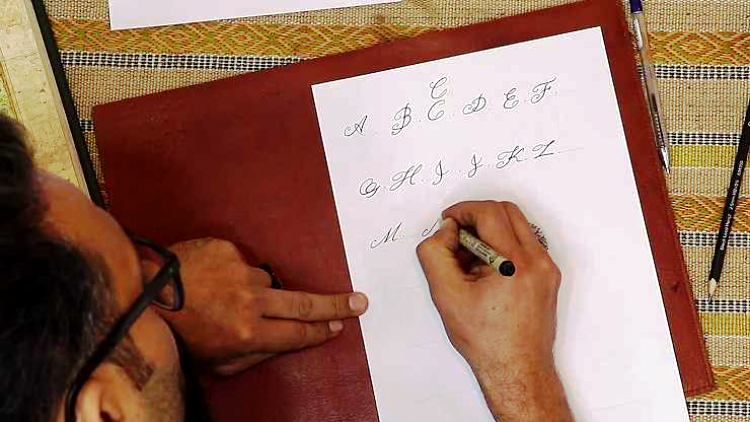 C
A. B. C. D. E. F.
G. H. I. J. K. L
M. N